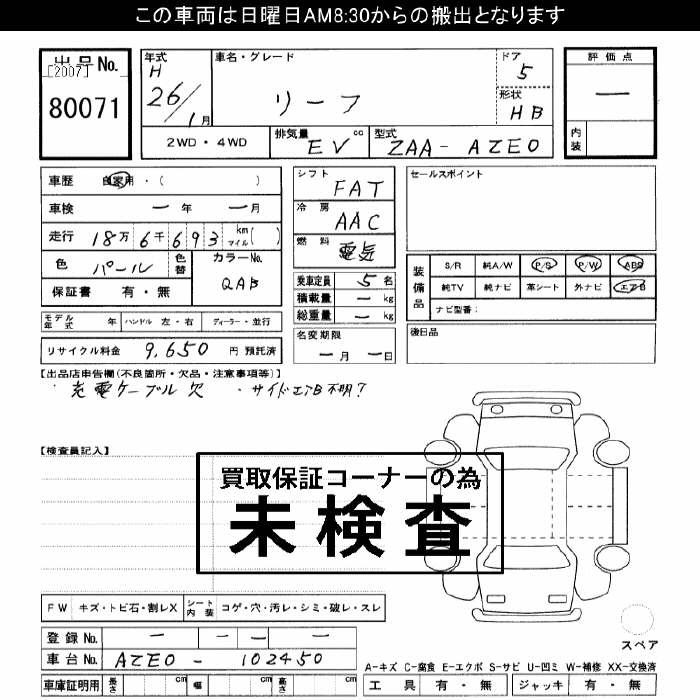 この車両は日曜日AM8:30からの搬出となります
出品No.
[2007]
80071
年式
H
26/1月
車名・グレード
リーフ
ドア
5
形状
HB
評価点
ー
内装
2WD・4WD
排気量
EV cc
型式
ZAA-AZE0
車歴 自家用・( )
車検 ー年 ー月
走行 18万6千693 km マイル( )
色 パール 色替
カラーNo.
QAB
保証書 有・無
シフト
FAT
冷房
AAC
燃料
電気
乗車定員 5名
積載量 ー kg
総重量 ー kg
セールスポイント
装備品
S/R 純A/W P/S P/W ABS
純TV 純ナビ 革シート 外ナビ エアB
ナビ型番:
モデル年式 年 ハンドル 左・右 ディーラー・並行
リサイクル料金 9,650 円 預託済
名変期限
ー月 ー日
後日品
【出品店申告欄(不良箇所・欠品・注意事項等)】
・充電ケーブル欠 ・サイドエアB不明?
【検査員記入】
買取保証コーナーの為
未検査
FW キズ・トビ石・割レX シート内装 コゲ・穴・汚レ・シミ・破レ・スレ
登録No. ー ー ー ー
車台No. AZE0-102450
車庫証明用 長さ cm 幅 cm 高さ cm
スペア
A-キズ C-腐食 E-エクボ S-サビ U-凹ミ W-補修 XX-交換済
工具 有・無 ジャッキ 有・無